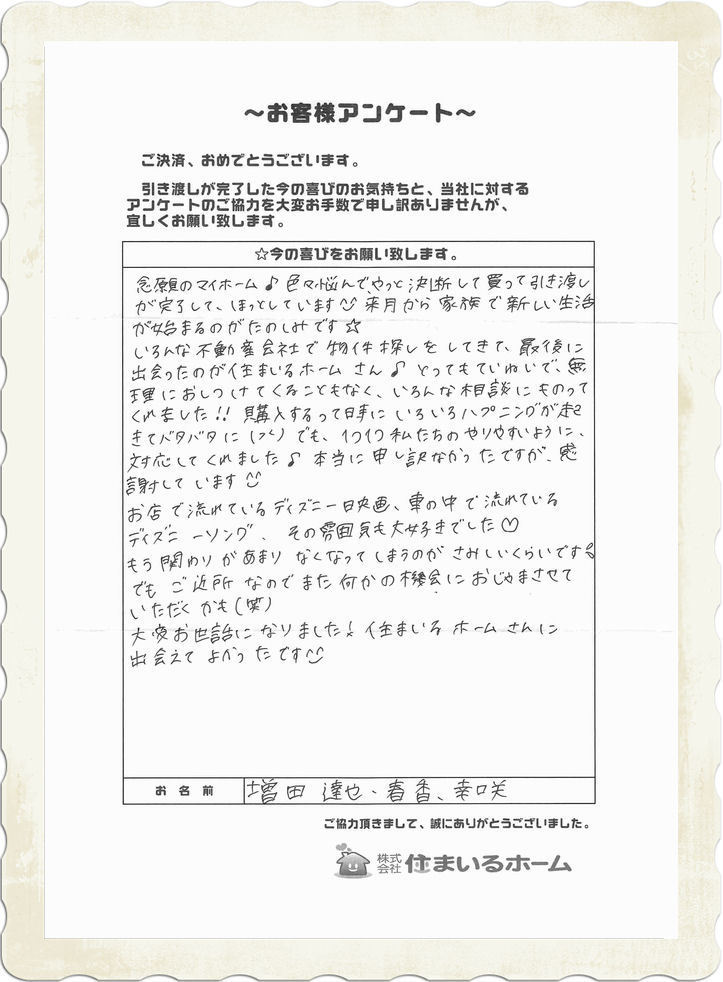 ～お客様アンケート～
ご決済、おめでとうございます。
引き渡しが完了した今の喜びのお気持ちと、当社に対する
アンケートのご協力を大変お手数で申し訳ありませんが、
宜しくお願い致します。
☆今の喜びをお願い致します。
念願のマイホーム♪色々悩んでやっと決断して買って引き渡し
が完了して、ほっとしています 来月から家族で新しい生活
が始まるのがたのしみです☆
いろんな不動産会社で物件探しをしてきて、最後に
出会ったのが住まいるホームさん♪とってもていねいで、無
理におしつけてくることもなく、いろんな相談にものって
くれました!! 購入するって時にいろいろハプニングが起
きてバタバタに でも、1つ1つ私たちのやりやすいように、
対応してくれました♪本当に申し訳なかったですが、感
謝しています
お店で流れているディズニー映画、車の中で流れている
ディズニーソング、その雰囲気も大好きでした♡
もう関わりがあまりなくなってしまうのがさみしいくらいです
でもご近所なのでまた何かの機会におじゃまさせて
いただくかも(笑)
大変お世話になりました! 住まいるホームさんに
出会えてよかったです
お名前 増田 達也・春香、幸咲
ご協力頂きまして、誠にありがとうございました。
株式会社 住まいるホーム